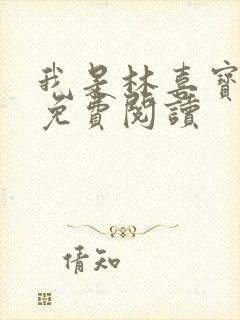 我是林喜寶
免費閱讀
倩知